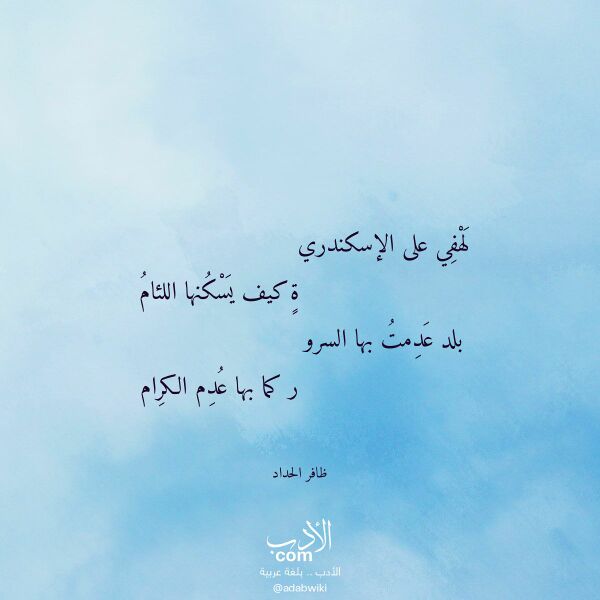 لَهْفِي على الإسكندري
ةٍ كيف يَسْكُنها اللئامُ
بلد عَدِمتُ بها السرو
ر كما بها عُدِم الكِرام
ظافر الحداد
الأدب
com
الأدب .. بلغة عربية
@adabwiki